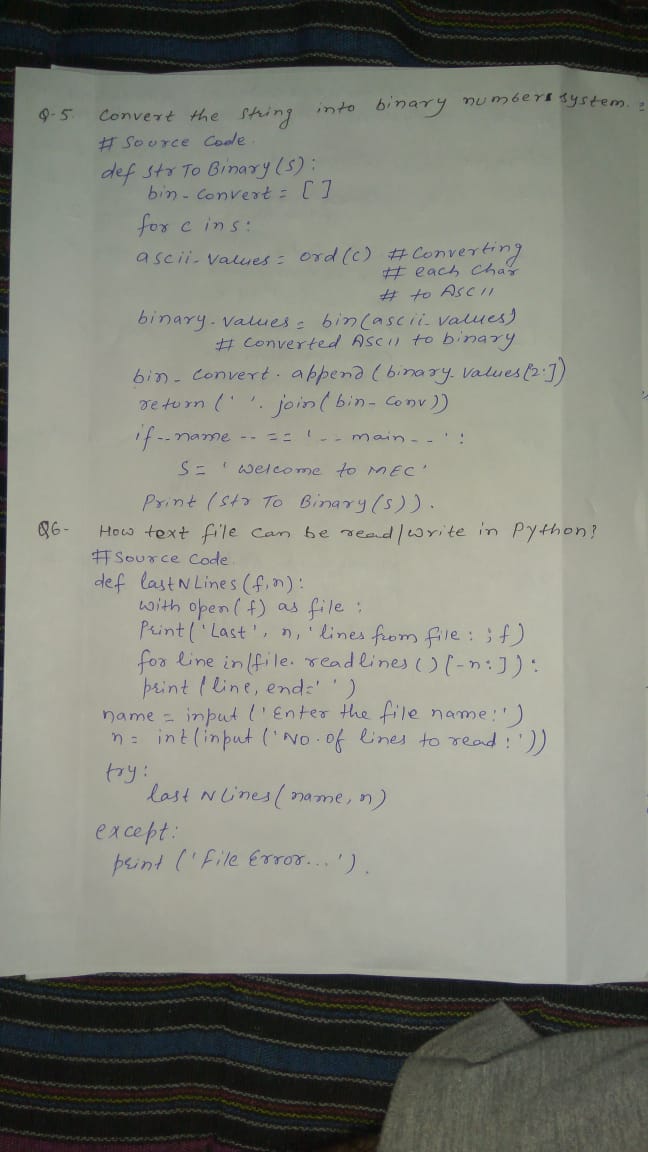 Q-5. Convert the string into binary numbers system.
# Source Code.
def str To Binary(s):
bin-convert = [ ]
for c in s:
ascii-values = ord(c) # Converting
# each char
# to ASCII
binary-values = bin(ascii-values)
# Converted ASCII to binary
bin-convert.append(binary-values[2:])
return (' '.join(bin-conv))
if--name -- == '-- main--':
S = 'Welcome to MEC'
Print (Str To Binary(s)).
Q6- How text file can be read/write in Python?
# Source Code.
def lastNLines(f,n):
with open(f) as file :
Print('Last', n, 'lines from file : ; f)
for line in(file.readlines()[-n:]):
print (line, end=' ')
name = input ('Enter the file name:')
n = int(input ('No.of lines to read :'))
try:
last N Lines(name, n)
except:
print ('File Error...').